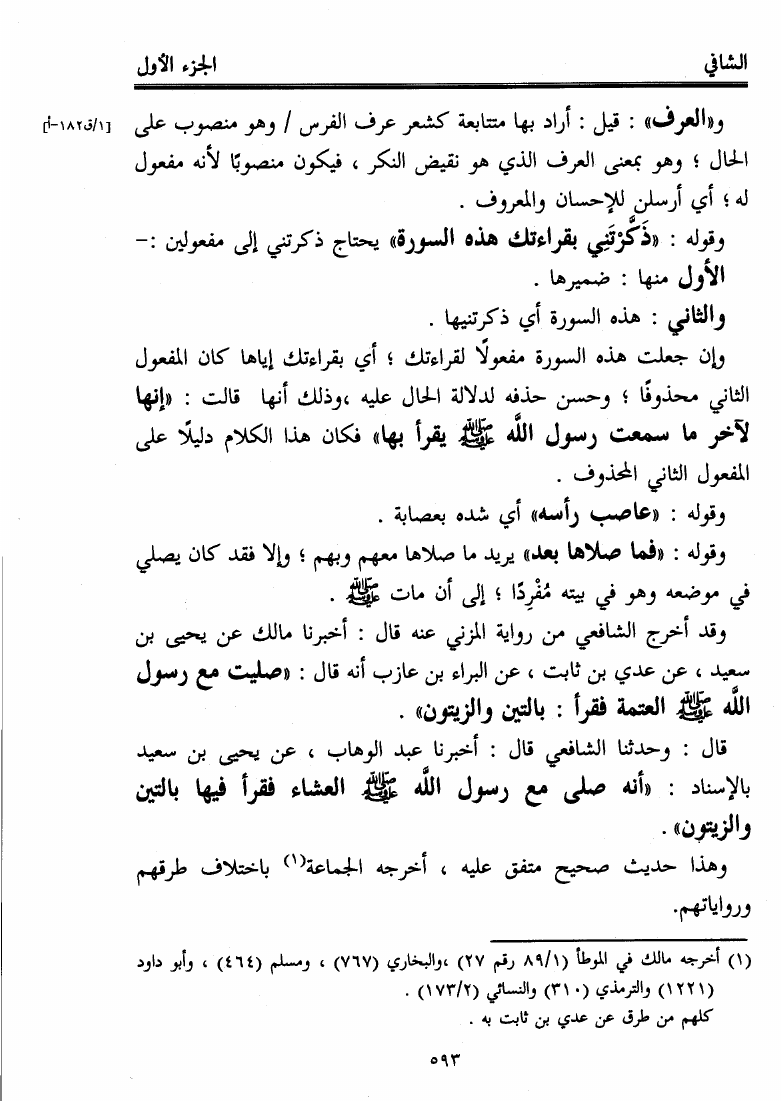 الشافي
الجزء الأول
و«العرف» : قيل : أراد بها متتابعة كشعر عرف الفرس / وهو منصوب على
[١/ق١٨٢-أ]
الحال ؛ وهو بمعنى العرف الذي هو نقيض النكر ، فيكون منصوبًا لأنه مفعول
له ؛ أي أرسلن للإحسان والمعروف .
وقوله : «ذَكَّرْتَنِي بقراءتك هذه السورة» يحتاج ذكرتني إلى مفعولين :-
الأول منها : ضميرها .
والثاني : هذه السورة أي ذكرتنيها .
وإن جعلت هذه السورة مفعولًا لقراءتك ؛ أي بقراءتك إياها كان المفعول
الثاني محذوفًا ؛ وحسن حذفه لدلالة الحال عليه ،وذلك أنها قالت : «إنها
لآخر ما سمعت رسول اللَّه ﷺ يقرأ بها» فكان هذا الكلام دليلًا على
المفعول الثاني المحذوف .
وقوله : «عاصب رأسه» أي شده بعصابة .
وقوله : «فما صلاها بعد» يريد ما صلاها معهم وبهم ؛ وإلا فقد كان يصلي
في موضعه وهو في بيته مُفْرِدًا ؛ إلى أن مات ﷺ .
وقد أخرج الشافعي من رواية المزني عنه قال : أخبرنا مالك عن يحيى بن
سعيد ، عن عدي بن ثابت ، عن البراء بن عازب أنه قال : «صليت مع رسول
اللَّه ﷺ العتمة فقرأ : بالتين والزيتون» .
قال : وحدثنا الشافعي قال : أخبرنا عبد الوهاب ، عن يحيى بن سعيد
بالإسناد : «أنه صلى مع رسول اللَّه ﷺ العشاء فقرأ فيها بالتين
والزيتون» .
وهذا حديث صحيح متفق عليه ، أخرجه الجماعة(١) باختلاف طرقهم
ورواياتهم.
(١) أخرجه مالك في الموطأ (٨٩/١ رقم ٢٧) ،والبخاري (٧٦٧) ، ومسلم (٤٦٤) ، وأبو داود
(١٢٢١) والترمذي (٣١٠) والنسائي (١٧٣/٢) .
كلهم من طرق عن عدي بن ثابت به .
٥٩٣